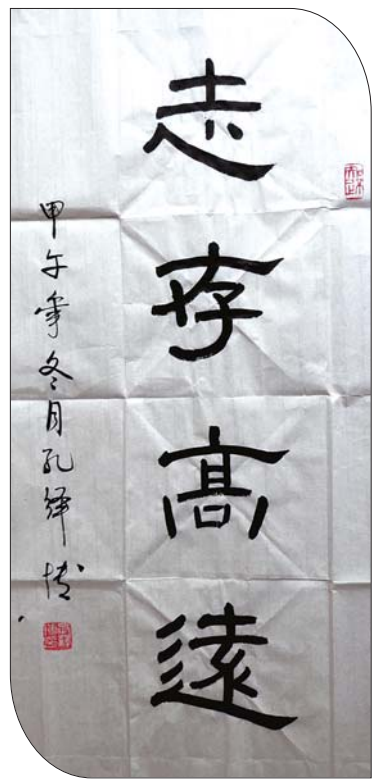 志存高遠
甲午年冬月孔繹博